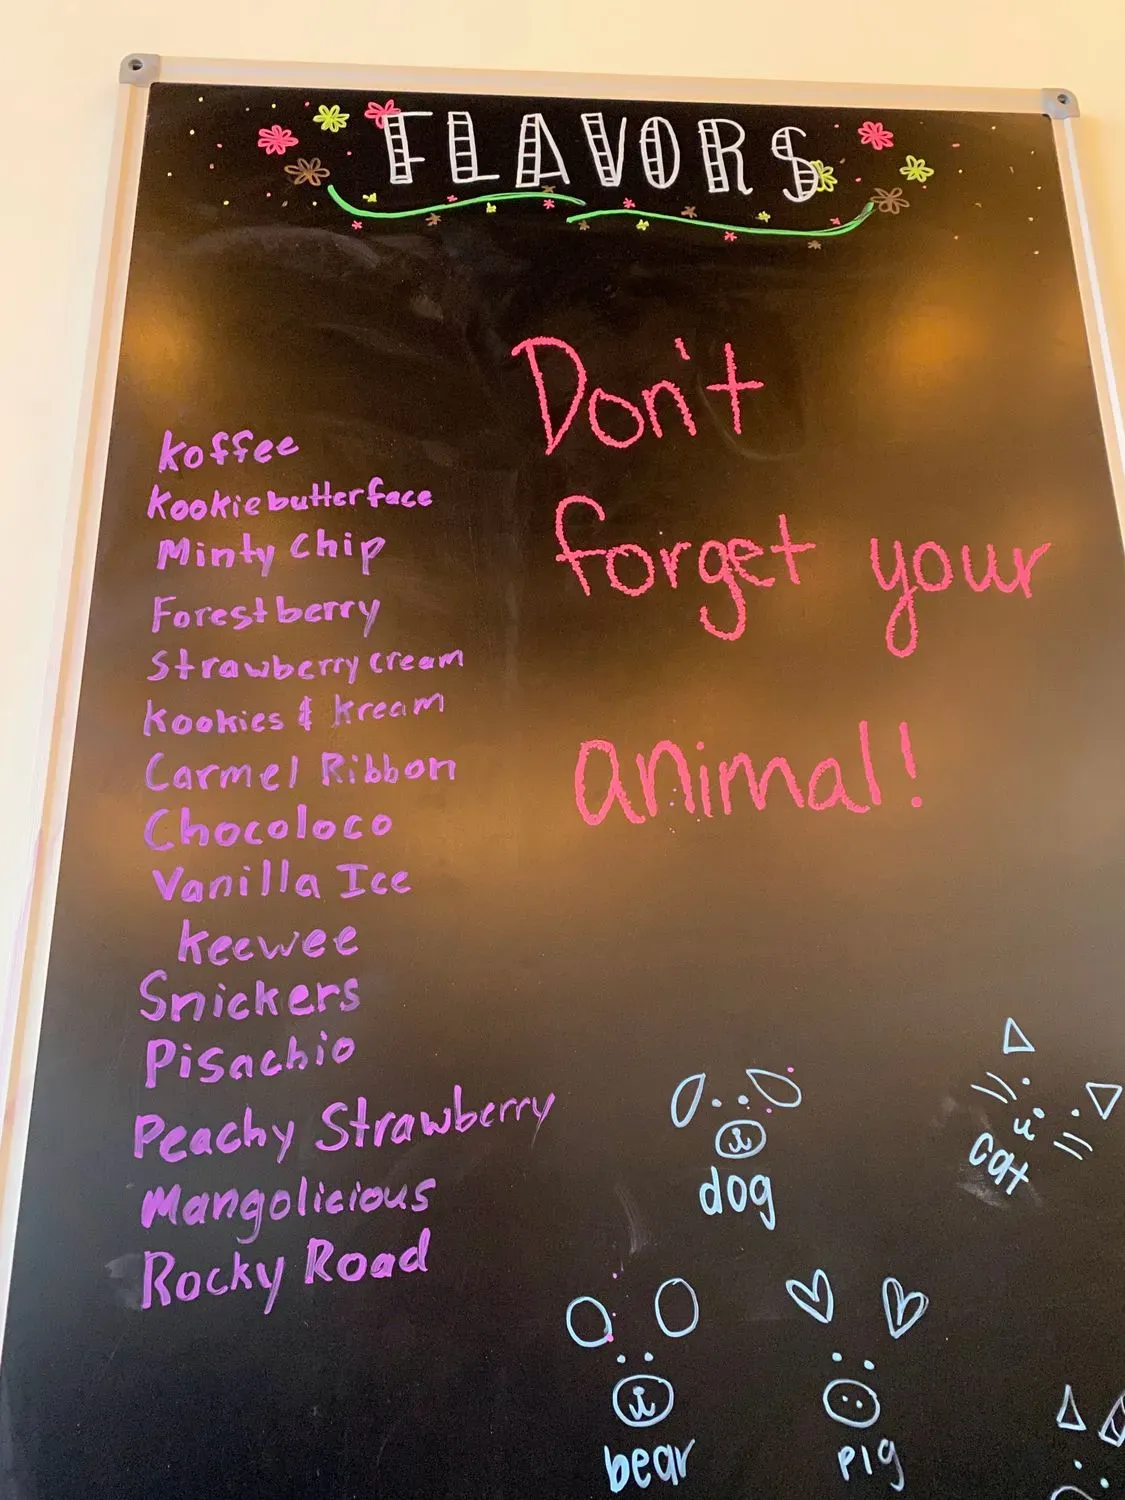 FLAVORS
Koffee
Kookiebutterface
Minty Chip
Forestberry
Strawberry cream
Kookies & Kream
Carmel Ribbon
Chocoloco
Vanilla Ice
Keewee
Snickers
Pisachio
Peachy Strawberry
Mangolicious
Rocky Road
Don't
forget your
animal!
dog
cat
bear
pig